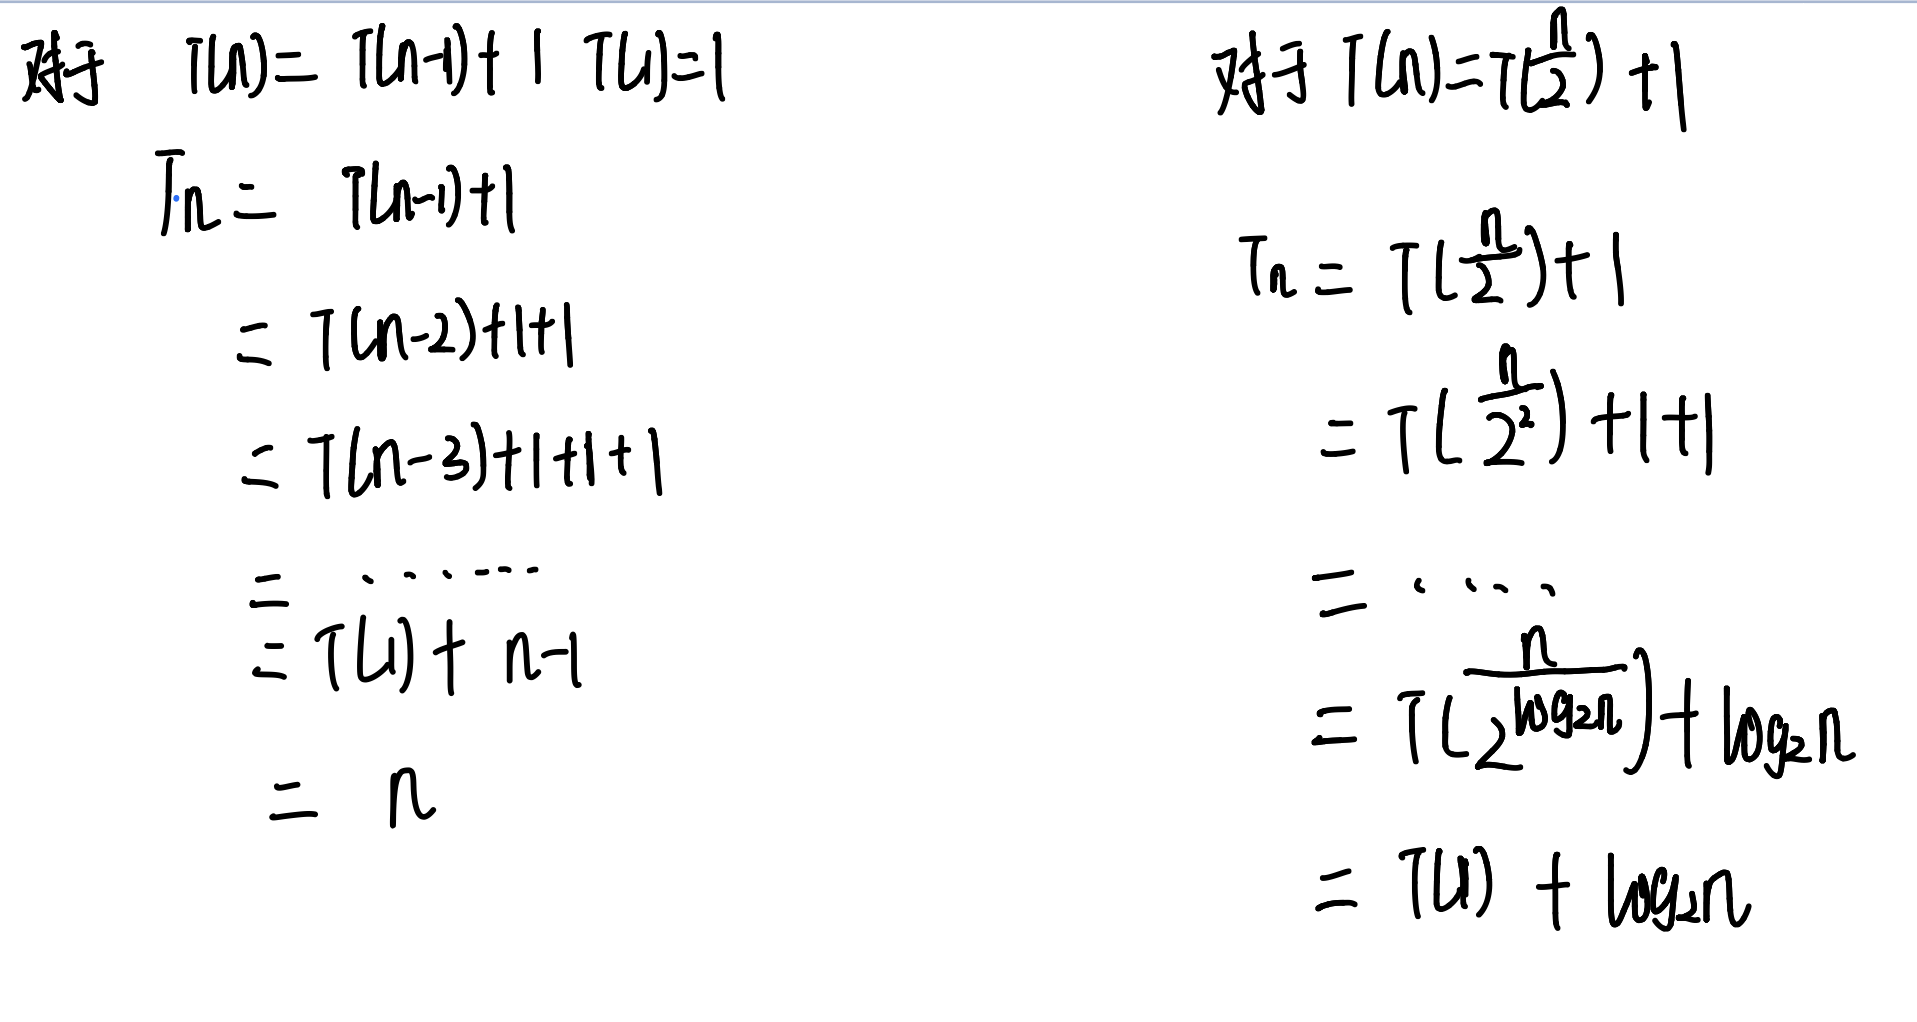 对于 T(n)= T(n-1)+1 T(1)=1
Tn= T(n-1)+1
= T(n-2)+1+1
= T(n-3)+1+1+1
= ......
= T(1)+ n-1
= n
对于 T(n)=T(n/2)+1
Tn= T(n/2)+1
= T(n/2²)+1+1
= ....
= T(n/2^log₂n)+log₂n
= T(1) + log₂n